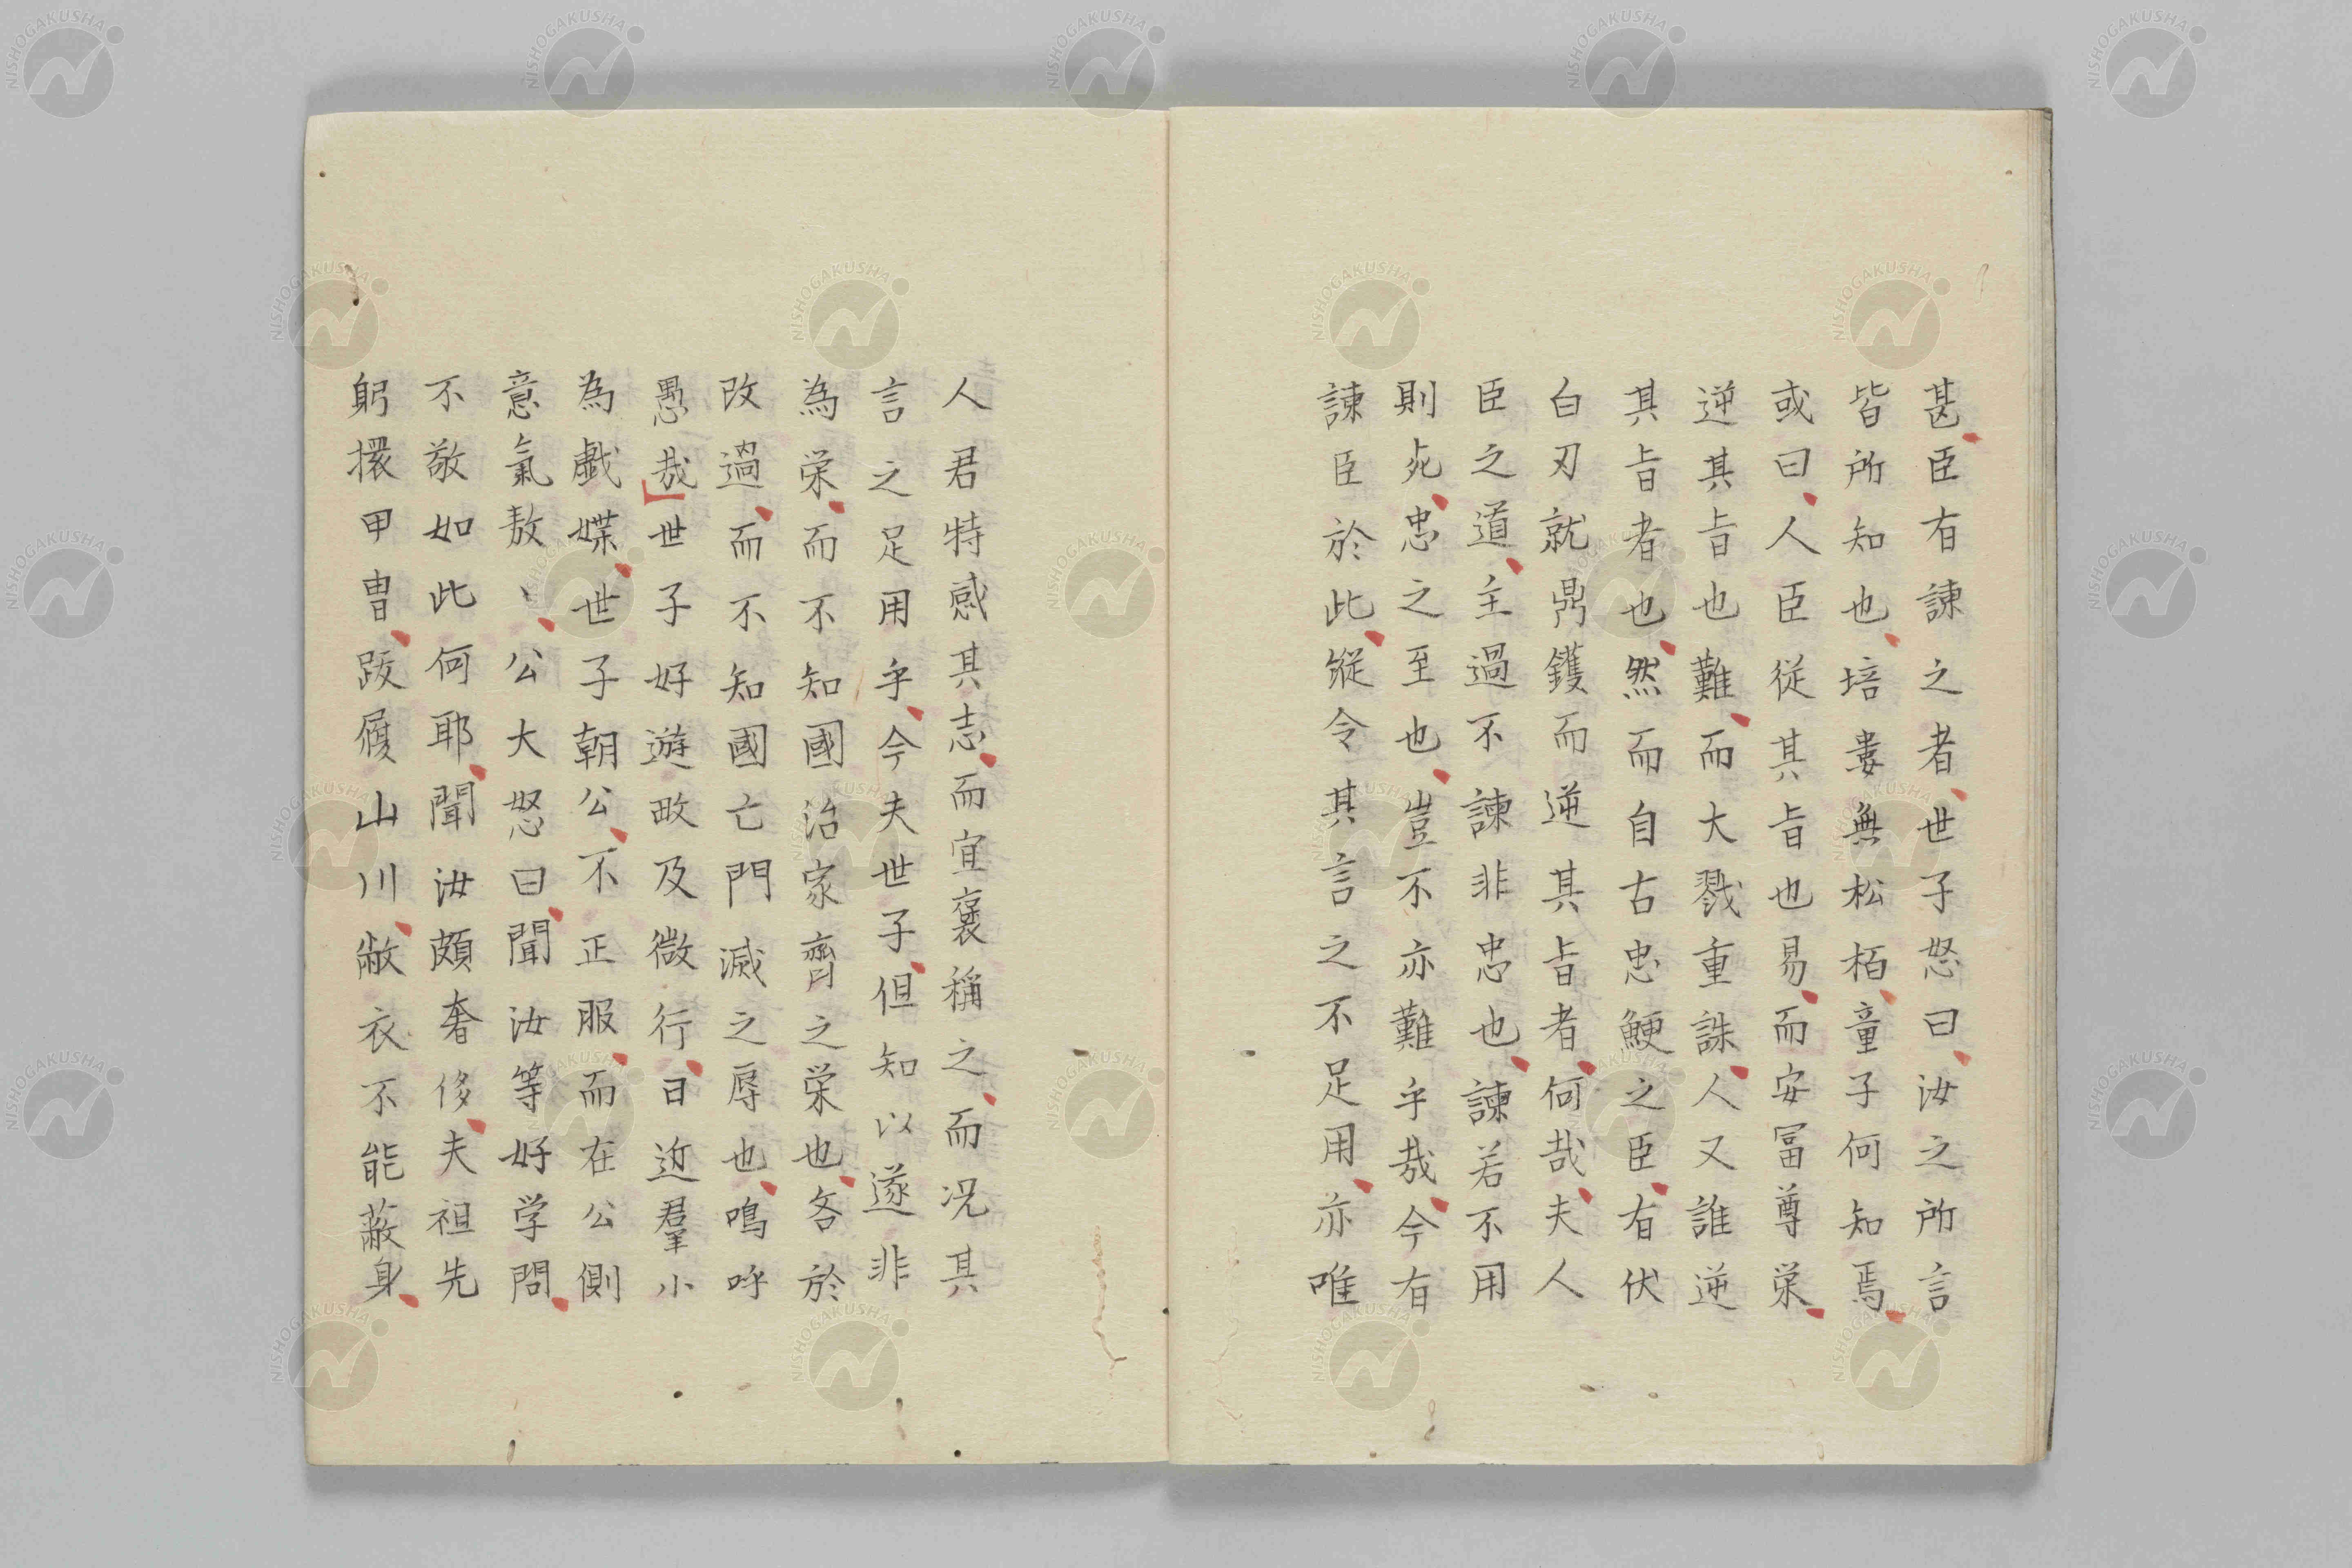 甚臣有諫之者世子怒曰汝之所言
皆所知也培婁無松栢童子何知焉
或曰人臣従其旨也易而安冨尊栄
逆其旨也難而大戮重誅人又誰逆
其旨者也然而自古忠鯁之臣有伏
白刃就鼎鑊而逆其旨者何哉夫人
臣之道主過不諫非忠也諫若不用
則死忠之至也豈不亦難乎哉今有
諫臣於此縦令其言之不足用亦唯
人君特感其志而宜褒稱之而况其
言之足用乎今夫世子但知以遂非
為栄而不知國治家齊之栄也各於
改過而不知國亡門滅之辱也鳴呼
愚哉世子好遊畋及微行日近羣小
為戯媟世子朝公不正服而在公側
意氣敖〻公大怒曰聞汝等好学問
不敬如此何耶聞汝頗奢侈夫祖先
躬擐甲冑跋履山川敝衣不能蔽身
NISHOGAKUSHA